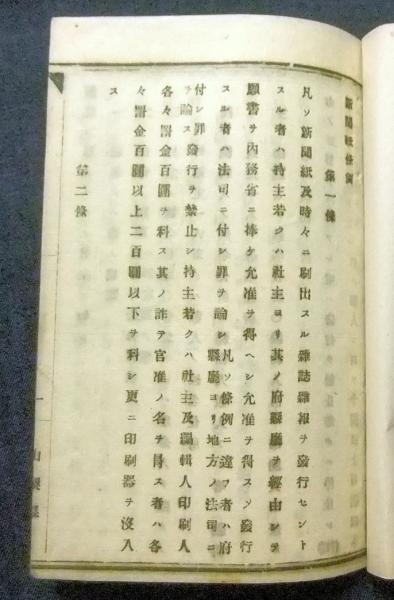 新聞紙條例
第一條
凡ソ新聞紙及時々ニ刷出スル雜誌雜報ヲ發行セント
スル者ハ持主若クハ社主ヨリ其ノ府縣廳ヲ經由シテ
願書ヲ内務省ニ捧ケ允准ヲ得ヘシ允准ヲ得スノ發行
スル者ハ法司ニ付シ罪ヲ論シ凡ソ條例ニ違フ者ハ府縣廳ヨリ地方ノ法司ニ
付シ罪ヲ論ス發行ヲ禁止シ持主若クハ社主及編輯人印刷人
各々罰金百圓ヲ科ス其ノ詐テ官准ノ名ヲ冒ス者ハ各
々罰金百圓以上二百圓以下ヲ科シ更ニ印刷器ヲ沒入
ス
第二條
一
山梨縣